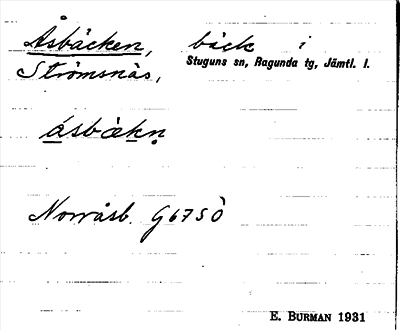 Åsbäcken, bäck i
Strömsnäs, Stuguns sn, Ragunda tg, Jämtl. l.
åsbäkn̥
Norråsb. G6750
E. BURMAN 1931